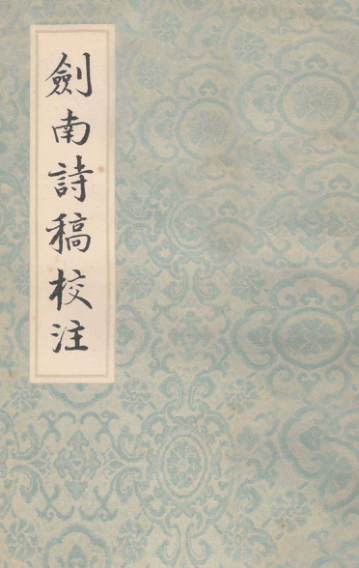 劍南詩稿校注